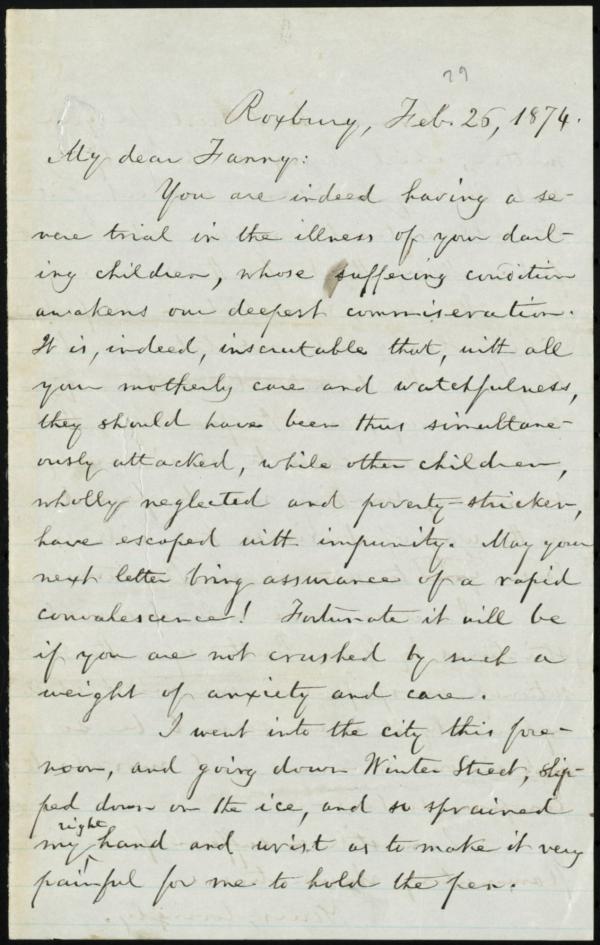 29
Roxbury, Feb. 26, 1874.
My dear Fanny:
You are indeed having a se-
vere trial in the illness of your darl-
ing children, whose suffering condition
awakens our deepest commiseration.
It is, indeed, inscrutable that, with all
your motherly care and watchfulness,
they should have been thus simultane-
ously attacked, while other children,
wholly neglected and poverty-stricken,
have escaped with impunity. May your
next letter bring assurance of a rapid
convalescence! Fortunate it will be
if you are not crushed by such a
weight of anxiety and care.
I went into the city this fore-
noon, and going down Winter Street, slip-
ped down on the ice, and so sprained
my right hand and wrist as to make it very
painful for me to hold the pen.